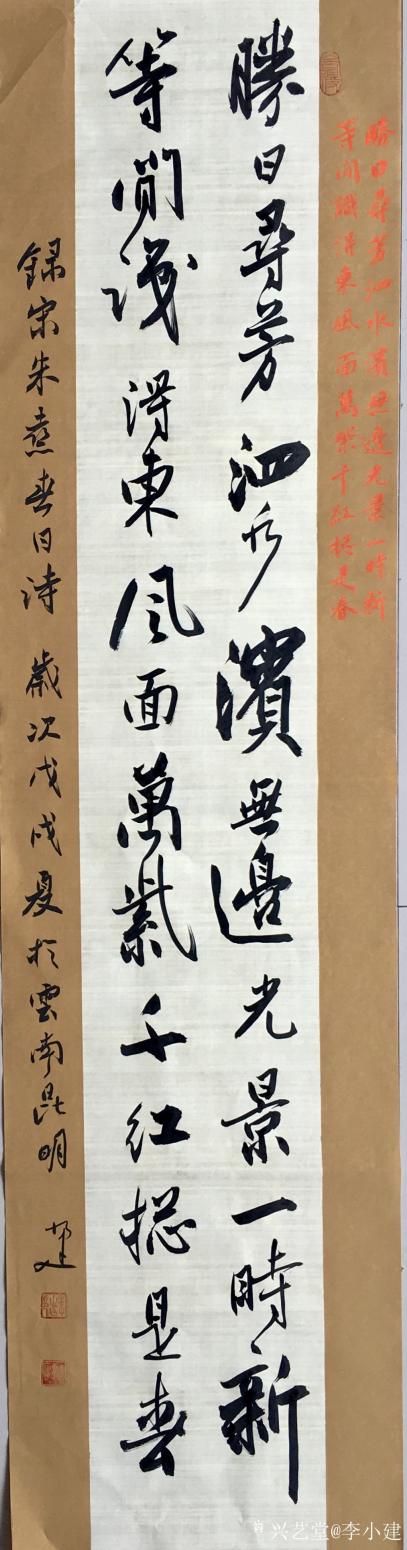 勝日尋芳泗水濱無邊光景一時新
等閒識得東風面萬紫千紅揔是春
勝日尋芳泗水濱無邊光景一時新
等閒識得東風面萬紫千紅揔是春
錄宋朱熹春日詩 歲次戊戌夏於雲南昆明 小建
兴艺堂@李小建